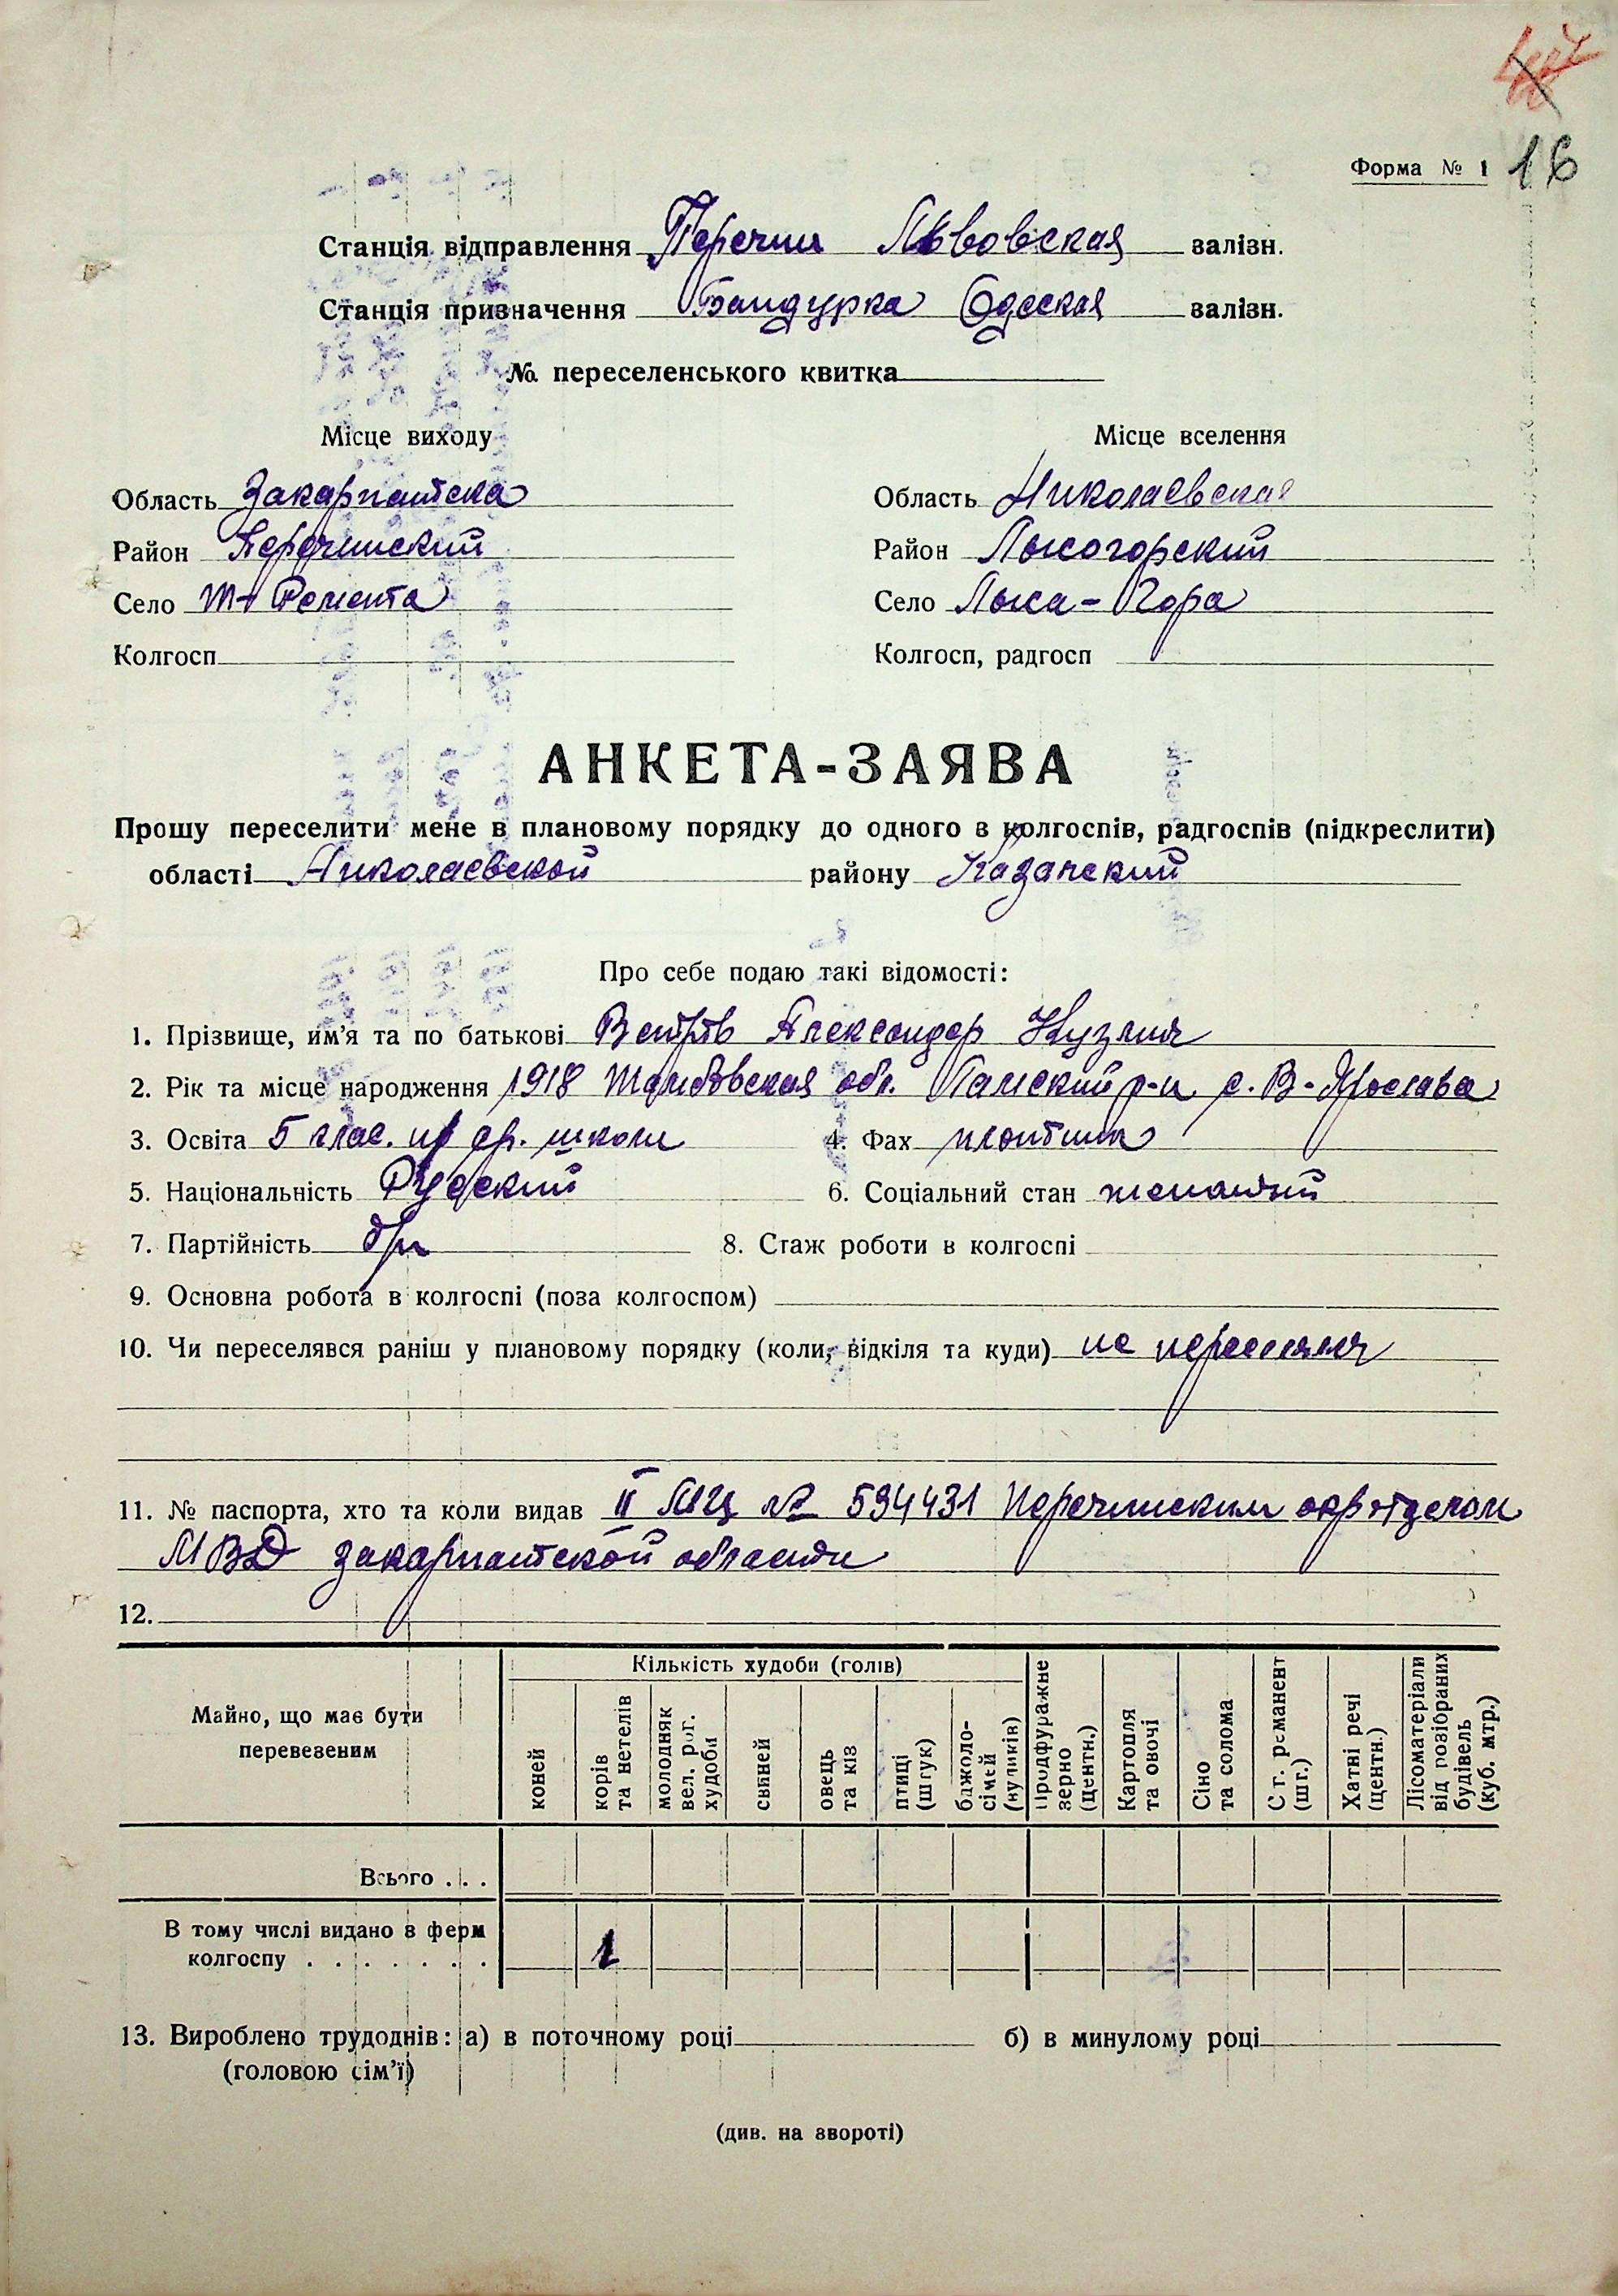 Форма № 1 16
Станція відправлення Перечин Львовская залізн.
Станція призначення Бандурка Одеская залізн.
№ переселенського квитка
Місце виходу Місце вселення
Область Закарпатска Область Николаевская
Район Перечинский Район Лысогорский
Село Село Лыса-Гора
Колгосп Колгосп, радгосп
АНКЕТА-ЗАЯВА
Прошу переселити мене в плановому порядку до одного з колгоспів, радгоспів (підкреслити)
області Николаевской району Казанский
Про себе подаю такі відомості:
1. Прізвище, им’я та по батькові Александр Кузмич
2. Рік та місце народження 1918 Тамбовская обл. р-н с. В-Ярослава
3. Освіта 5 клас. ср. школи 4. Фах плотник
5. Національність Русский 6. Соціальний стан
7. Партійність б/п 8. Стаж роботи в колгоспі
9. Основна робота в колгоспі (поза колгоспом)
10. Чи переселявся раніш у плановому порядку (коли, відкіля та куди) не
11. № паспорта, хто та коли видав II МЦ № 594431 Перечинским окротделом
МВД закарпатской области
12.
Майно, що має бути перевезеним
Кількість худоби (голів)
коней
корів та нетелів
молодняк вел. рог. худоби
свиней
овець та кіз
птиці (штук)
бджоло-сімей (вуликів)
Продфуражне зерно (центн.)
Картопля та овочі
Сіно та солома
С г. реманент (шт.)
Хатні речі (центн.)
Лісоматеріали від розібраних будівель (куб. мтр.)
Всього . . .
В тому числі видано з ферм
колгоспу . . . . . . . 1
13. Вироблено трудоднів: а) в поточному році б) в минулому році
(головою сім’ї)
(див. на звороті)